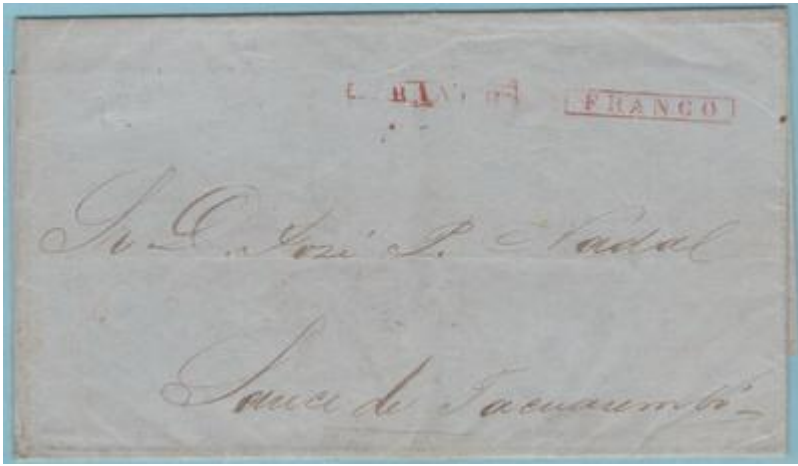 FRANCO
Sr D. José P. Nadal
Sauce de Tacuarembó